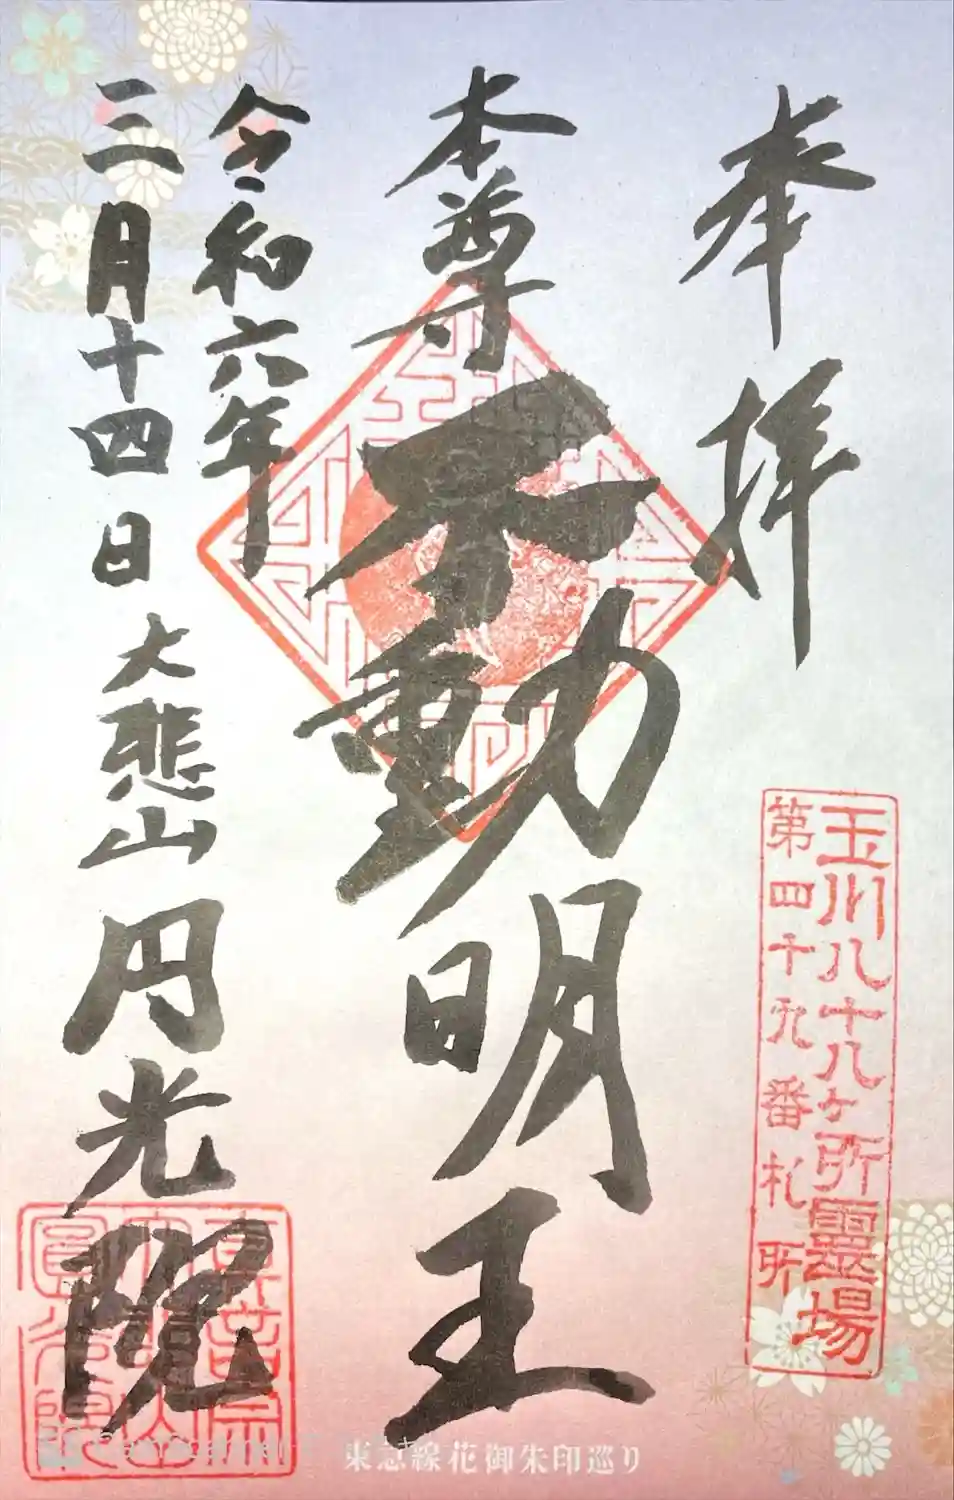 奉拝
玉川八十八ヶ所霊場
第四十九番札所
本尊
不動明王
令和六年
三月十四日
大悲山
円光院
東急線花御朱印巡り